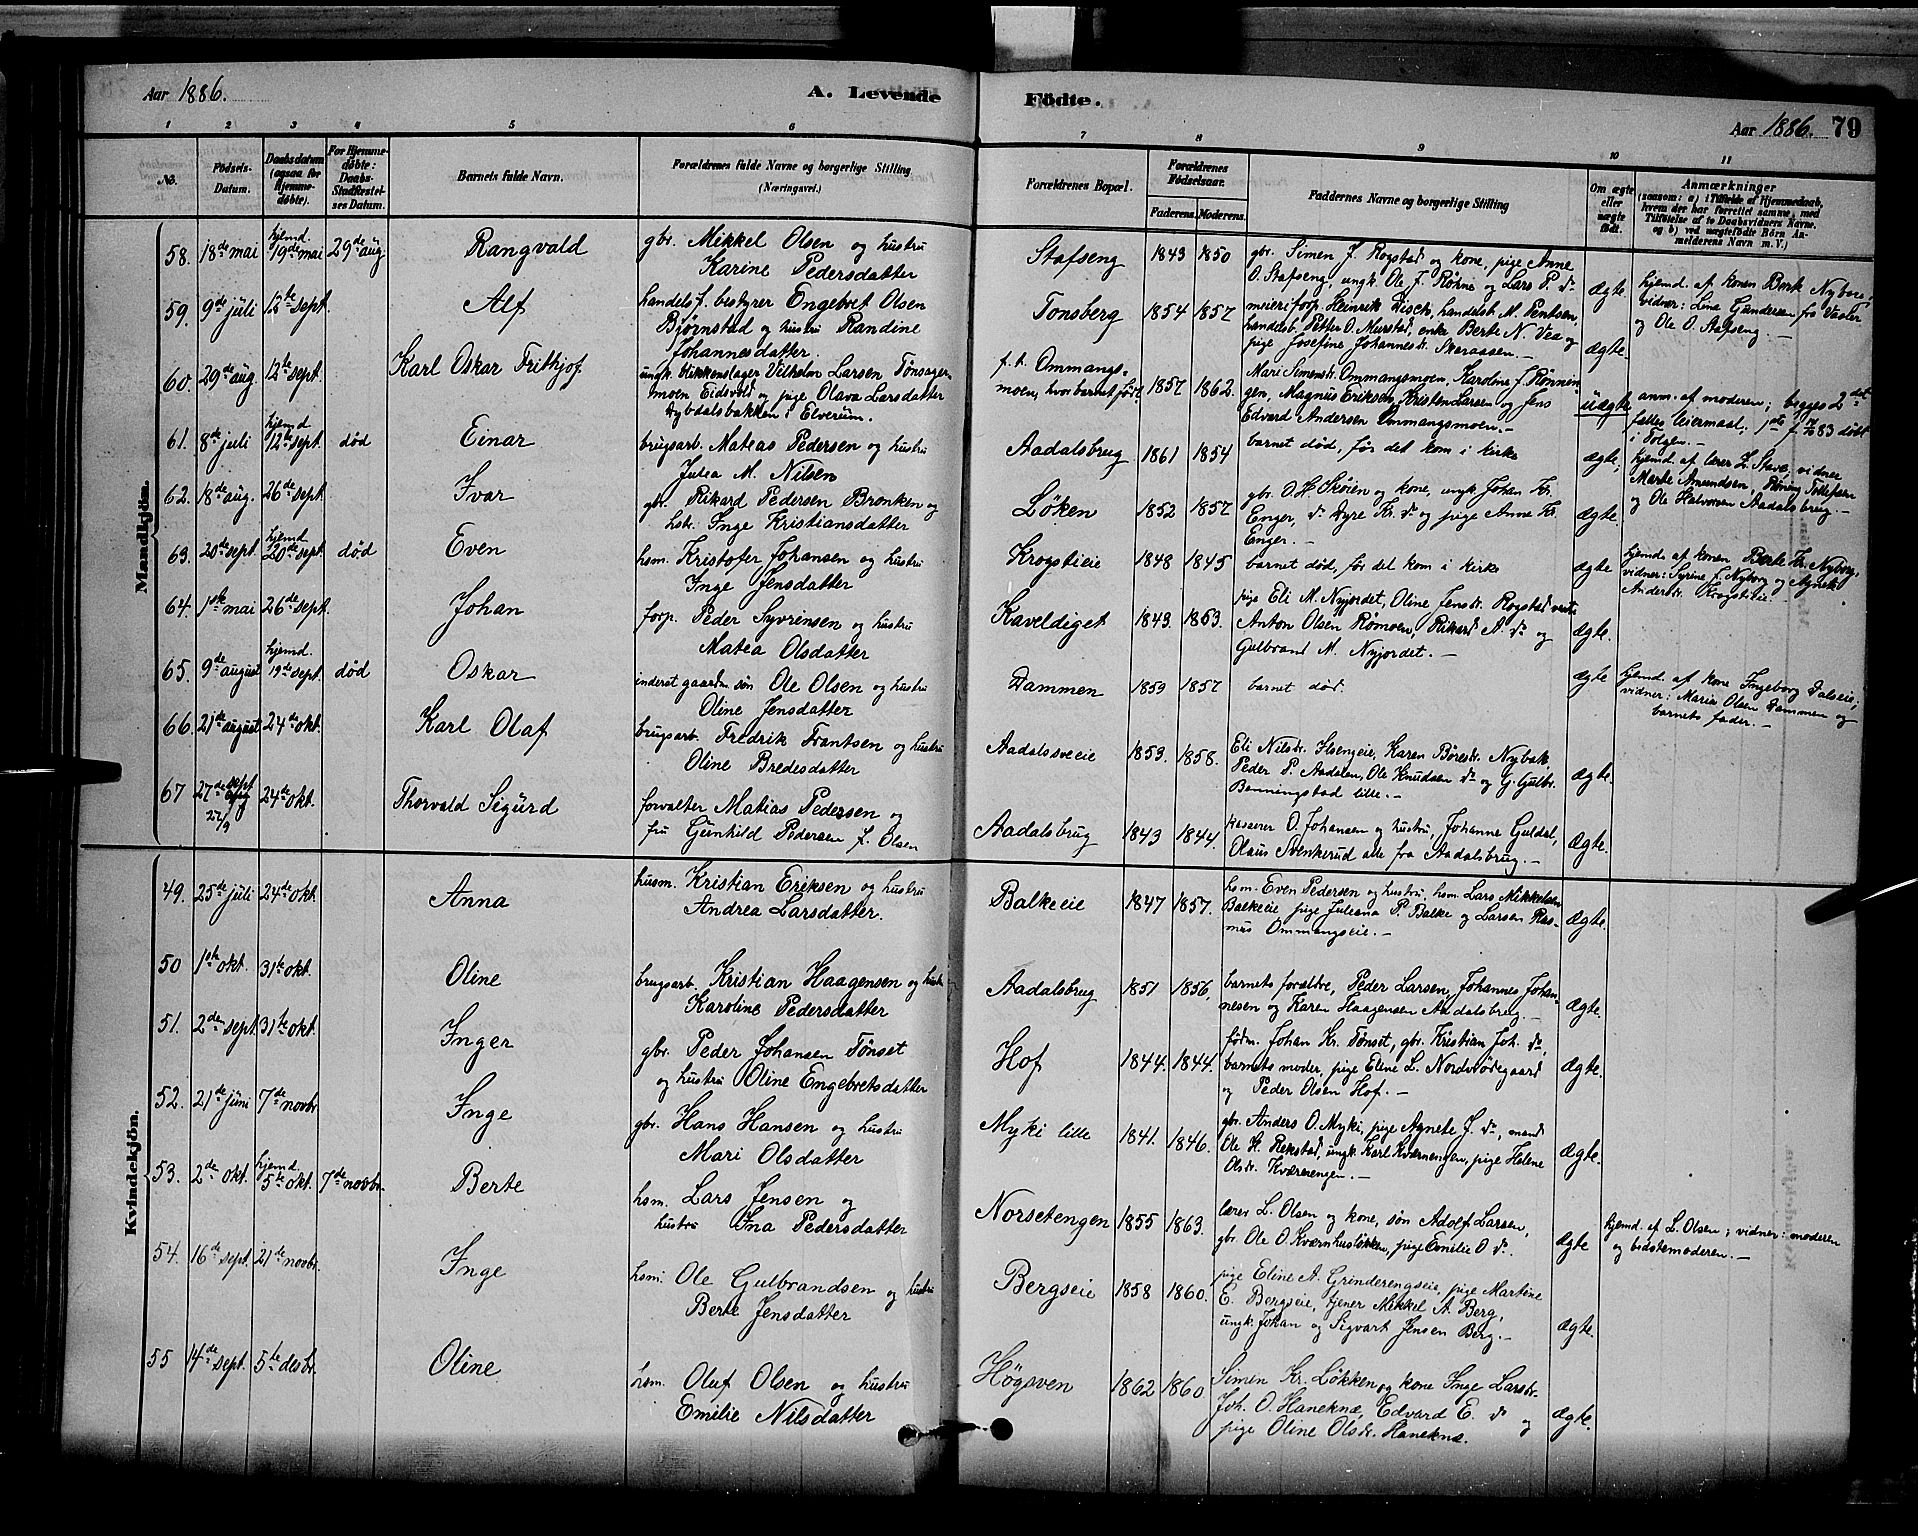 Aar 1886.
A. Levende
Fødte.
Aar 1886. 79
1 2 3 4 5 6 7 8 9 10 11
No.
Fødsels-Datum.
Daabsdatum (ogsaa for Hjemme-døbte).
For Hjemme-døbte: Daabs-Stadfæstel-ses Datum.
Barnets fulde Navn.
Forældrenes fulde Navne og borgerlige Stilling (Næringsvei.)
Forældrenes Bopæl.
Forældrenes Fødselsaar.
Faderens. Moderens.
Faddernes Navne og borgerlige Stilling
Om ægte eller uægte født.
Anmærkninger
(saasom: a) i Tilfælde af Hjemmedaab, hvem der har forrettet samme, med Tilføielse af to Daabsvidners Navne, og b) ved uægtefødte Børn Anmelderens Navn m. V.)
Mandkjön.
58. 18de mai hjemd. 19de mai 29de aug. Rangvald
gbr. Mikkel Olsen og hustru
Karine Pedersdatter
Stafseng 1843 1850
gbr. Simen J. Rogstad og kone, pige Anne
O. Stafseng, ungk. Ole J. Rønne og Lars P. do
ægte.
hjemd. af konen Berte Nyborg,
vidner: Lina Gundersen fra Vaaler
og Ole O. Stafseng.
59. 9de juli 12te sept. Alf
handelsf. bestyrer Engebret Olsen
Bjørnstad og hustru Randine
Johannesdatter.
Tonsberg 1854 1857
meieriforp. Heinrik Disch, handelsb. M. Bentsen,
handelsb. Petter O. Murstad, enke Berte N. Vea og
pige Josefine Johannesdr. Skeraasen.
ægte.
60. 29de aug. 12te sept. Karl Oskar Frithjof
ungk. blikkenslager Vilhelm Larsen Tønsager-
moen Eidsvold og pige Olava Larsdatter
Dybdalsbakken i Elverum.
f. t. Ommangs-
moen, hvor barnet født 1857 1862.
Mari Simensdr. Ommangsmoen, Karoline J. Rønnin-
gen, Magnus Eriksen, Kristen Larsen og Jens
Edvard Andersen Ommangsmoen.
uægte
anm. af moderen; begges 2det
fælles leiermaal; 1ste f. 83 døbt
i Folgen.
61. 8de juli hjemd. 12te sept. død Einar
brugsarb. Mateas Pedersen og hustru
Julea M. Nilsen
Aadalsbrug 1861 1854
barnet død, før det kom i kirke
ægte,
hjemd. af lærer L. Stave, vidner
Marte Amundsen, Tollefsen
og Ole Halvorsen Aadalsbrug.
62. 18de aug. 26de sept. Ivar
gbr. Rikard Pedersen Bronken og
hstr. Inge Kristiansdatter
Løken 1852 1857
gbr. O. H. Skøien og kone, ungk. Johan Kr.
Enger, do Dyre Kr. do og pige Anne Kr.
Enger.
ægte.
63. 20de sept. hjemd. 20de sept. død Even
hsm. Kristofer Johansen og hustru
Inge Jensdatter
Krogstieie 1848 1845
barnet død, før det kom i kirke
ægte
hjemd. af konen Berte Kr. Nyborg,
vidner: Syrine J. Nyborg og Agnete
Andersdr. Krogstieie.
64. 1ste mai 26de sept. Johan
forp. Peder Syvrensen og hustru
Matea Olsdatter
Kaveldiget 1843. 1853.
pige Eli M. Nyjordet, Oline Jensdr. Rogstad
Anton Olsen Rømoen, Rikard A. do og
Gulbrand M. Nyjordet.
ægte.
65. 9de august hjemd. 19de sept. død Oskar
inderst gaardm. søn Ole Olsen og hustru
Oline Jensdatter
Dammen 1859 1857
barnet død.
ægte
hjemd. af kone Ingeborg Dalseie;
vidner: Maria Olsen Dammen og
barnets fader.
66. 21de august 24de okt. Karl Olaf
brugsarb. Fredrik Frantsen og hustru
Oline Bredesdatter
Aadalsveeie 1853. 1858.
Eli Nilsdr. Ilsengeie, Karen Børesdr. Nybak,
Peder P. Aadalen, Ole Knudsen do og G. Gulbr.
Benningstad lille.
ægte.
67 27de sept 27/9 24de okt. Thorvald Sigurd
forvalter Matias Pedersen og
fru Gunhild Pedersen f. Olsen
Aadalsbrug 1843 1844.
kasserer O. Johansen og hustru, Johanne Guldal,
Olaus Svenkerud alle fra Aadalsbrug.
ægte.
Kvindekjön.
49. 25de juli 24de okt. Anna
husm. Kristian Eriksen og hustru
Andrea Larsdatter.
Balkeeie 1847 1857.
hsm. Even Pedersen og hustru, hsm. Lars Mikkelsen
Balkeeie pige Juliana P. Balke og Larsen Ras-
mus Ommangseie.
ægte.
50 1ste okt. 31te okt. Oline
brugsarb. Kristian Haagensen og hustr
Karoline Pedersdatter
Aadalsbrug 1851 1856,
barnets forældre, Peder Larsen, Johannes Johan-
nesen og Karen Haagensen Aadalsbrug.
ægte.
51. 2den sept. 31te okt. Inger
gbr. Peder Johansen Tønset
og hustru Oline Engebretsdatter
Hof 1844. 1844.
fødm. Johan Kr. Tønset, gbr. Kristian Joh. do,
barnets moder, pige Eline L. Nordvødegaard
og Peder Olsen Hof.
ægte.
52. 21de juni 7de novbr. Inge
gbr. Hans Hansen og hustru
Mari Olsdatter
Myki lille 1841. 1846.
gbr. Anders O. Myki, pige Agnete J. do,
Ole H. Rekstad, ungk. Karl Kværnengen, pige Helene
Olsdr. Kværnengen.
ægte.
53. 2de okt. hjemd. 5te okt. 7de novbr. Berte
hsm. Lars Jensen og
hustru Ina Pedersdatter
Norsetengen 1855 1863.
lærer L. Olsen og kone, søn Adolf Larsen,
gbr. Ole O. Kværnhusløkken, pige Emilie O do.
ægte
hjemd. af L. Olsen; vidner: moderen
og bedstemoderen.
54. 16de sept. 21de novbr. Inge
hsm. Ole Gulbrandsen og hustru
Berte Jensdatter
Bergseie 1858 1860.
pige Eline A. Grinderengseie, pige Martine
E. Bergseie, tjener Mikkel A. Berg,
ungk. Johan og Sigvart Jensen Berg.
ægte.
55 14de sept. 5te desbr. Oline
hsm. Oluf Olsen og hustru
Emilie Nilsdatter
Høgsven 1862 1860
Simen Kr. Løkken og kone Inge Larsdr.
Joh. O. Haneknæ, Edvard E. do og
pige Oline Olsdr. Haneknæ.
ægte.